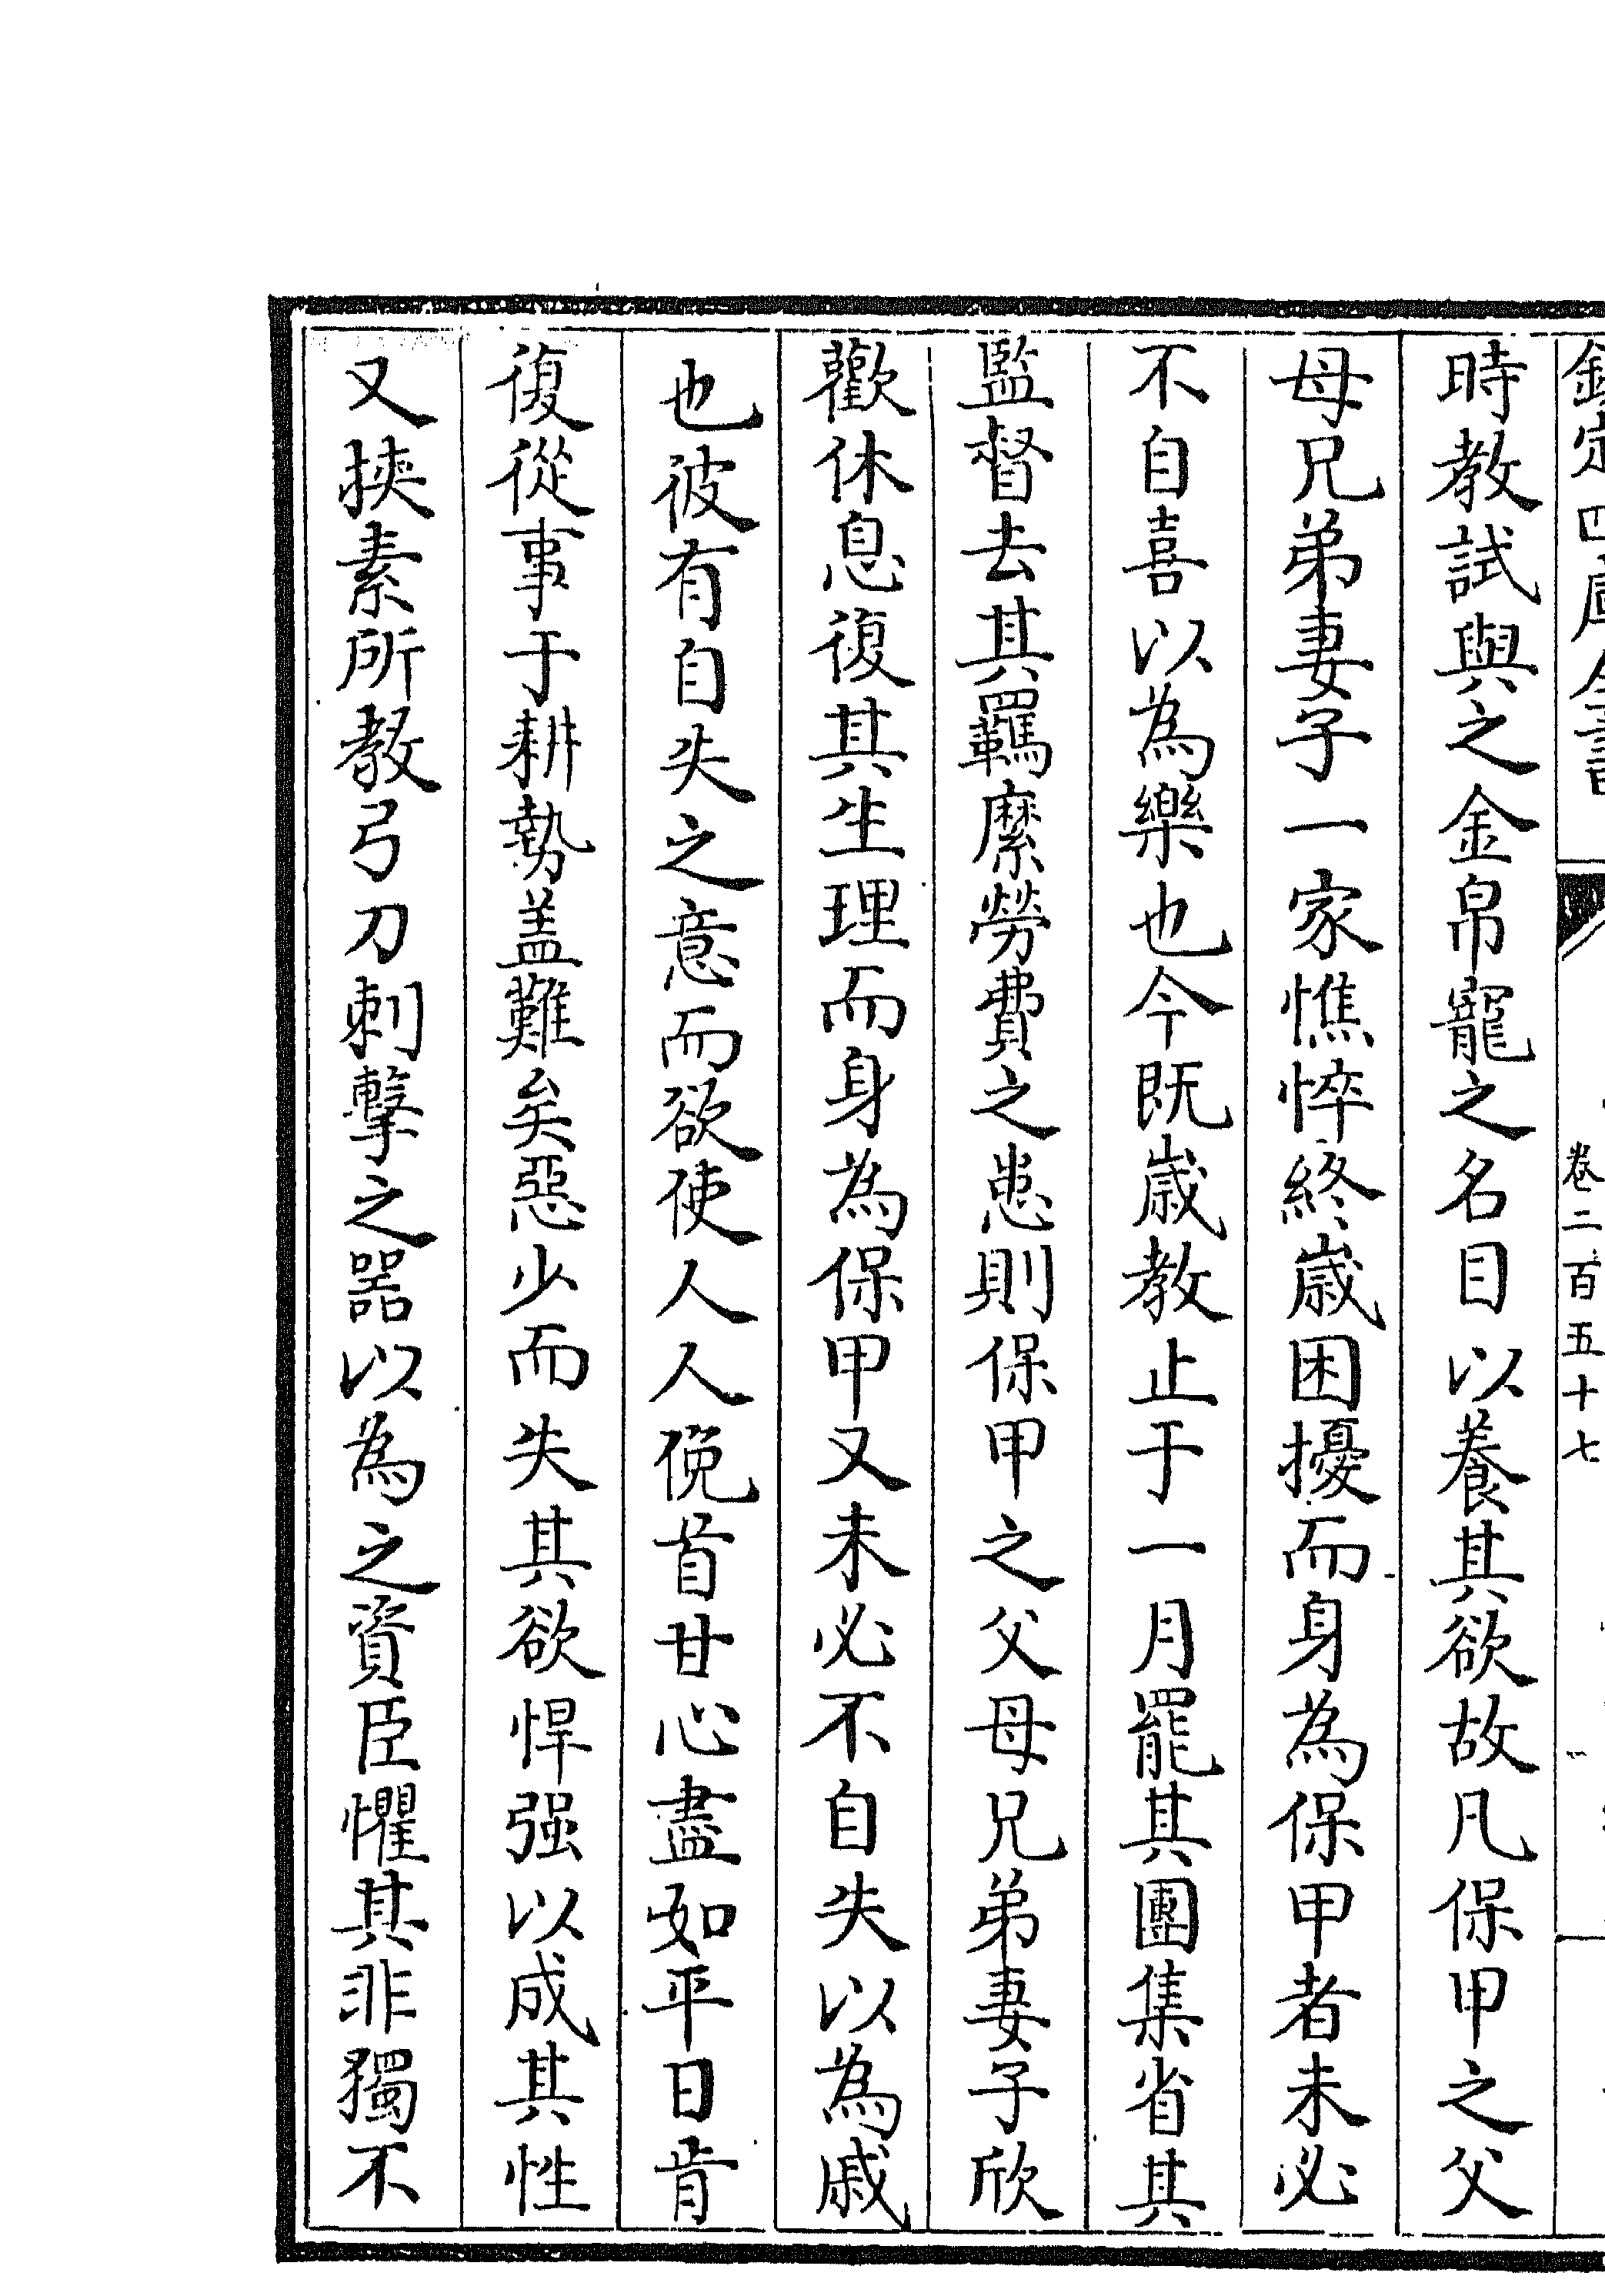 欽定四庫全書
卷二百五十七
時教試與之金帛寵之名目以養其欲故凡保甲之父
母兄弟妻子一家憔悴終歲困擾而身為保甲者未必
不自喜以為樂也今既歲教止于一月罷其團集省其
監督去其羈縻勞費之患則保甲之父母兄弟妻子欣
歡休息復其生理而身為保甲又未必不自失以為戚
也彼有自失之意而欲使人人俛首甘心盡如平日肯
復從事于耕勢盖難矣惡少而失其欲悍强以成其性
又挾素所教弓刀刺擊之器以為之資臣懼其非獨不